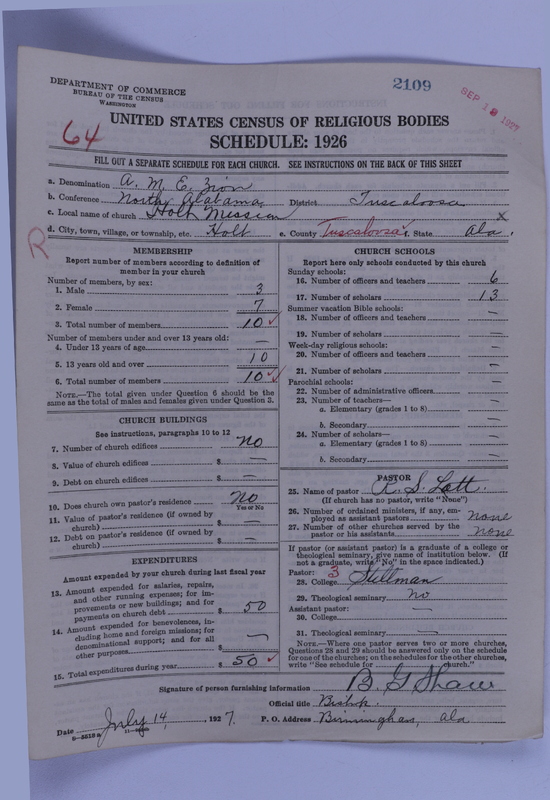 DEPARTMENT OF COMMERCE
BUREAU OF THE CENSUS
WASHINGTON
2109
SEP 1 1927
64
UNITED STATES CENSUS OF RELIGIOUS BODIES
SCHEDULE: 1926
FILL OUT A SEPARATE SCHEDULE FOR EACH CHURCH. SEE INSTRUCTIONS ON THE BACK OF THIS SHEET
a. Denomination A. M. E. Zion
b. Conference North Alabama District Tuscaloosa
c. Local name of church Holt Mission x
d. City, town, village, or township, etc. Holt e. County Tuscaloosa f. State Ala.
R
MEMBERSHIP
Report number of members according to definition of
member in your church
Number of members, by sex:
1. Male 3
2. Female 7
3. Total number of members 10 ✓
Number of members under and over 13 years old:
4. Under 13 years of age —
5. 13 years old and over 10
6. Total number of members 10 ✓
NOTE.—The total given under Question 6 should be the
same as the total of males and females given under Question 3.
CHURCH BUILDINGS
See instructions, paragraphs 10 to 12
7. Number of church edifices No
8. Value of church edifices $ —
9. Debt on church edifices $ —
10. Does church own pastor's residence No
Yes or No
11. Value of pastor's residence (if owned by
church) $ —
12. Debt on pastor's residence (if owned by
church) $ —
EXPENDITURES
Amount expended by your church during last fiscal year
13. Amount expended for salaries, repairs,
and other running expenses; for im-
provements or new buildings; and for
payments on church debt $ 50
14. Amount expended for benevolences, in-
cluding home and foreign missions; for
denominational support; and for all
other purposes $ —
15. Total expenditures during year $ 50 ✓
CHURCH SCHOOLS
Report here only schools conducted by this church
Sunday schools:
16. Number of officers and teachers 6
17. Number of scholars 13
Summer vacation Bible schools:
18. Number of officers and teachers —
19. Number of scholars —
Week-day religious schools:
20. Number of officers and teachers —
21. Number of scholars —
Parochial schools:
22. Number of administrative officers —
23. Number of teachers—
a. Elementary (grades 1 to 8) —
b. Secondary —
24. Number of scholars—
a. Elementary (grades 1 to 8) —
b. Secondary —
PASTOR
25. Name of pastor R. S. Lott.
(If church has no pastor, write "None")
26. Number of ordained ministers, if any, em-
ployed as assistant pastors none
27. Number of other churches served by the
pastor or his assistants none
If pastor (or assistant pastor) is a graduate of a college or
theological seminary, give name of institution below. (If
not a graduate, write "No" in the space indicated.)
Pastor: 3
28. College Stillman
29. Theological seminary No
Assistant pastor: —
30. College
31. Theological seminary —
NOTE.—Where one pastor serves two or more churches,
Questions 28 and 29 should be answered only on the schedule
for one of the churches; on the schedules for the other churches,
write "See schedule for church."
Signature of person furnishing information B. G. Shaw
Official title Bishop.
Date July 14, 1927. P. O. Address Birmingham, Ala